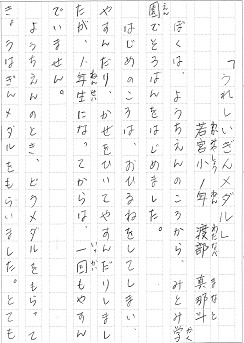 「うれしいぎんメダル」
若宮小１年 渡部 真那斗
ぼくは、ようちえんのころから、みとみ学
園でそろばんをはじめました。
はじめのころは、おひるねをしてしまい、
やすんだり、かぜをひいてやすんだりしまし
たが、１年生になってからは、一回もやすん
でいません。
ようちえんのとき、どうメダルをもらって
きょうはぎんメダルをもらいました。とても